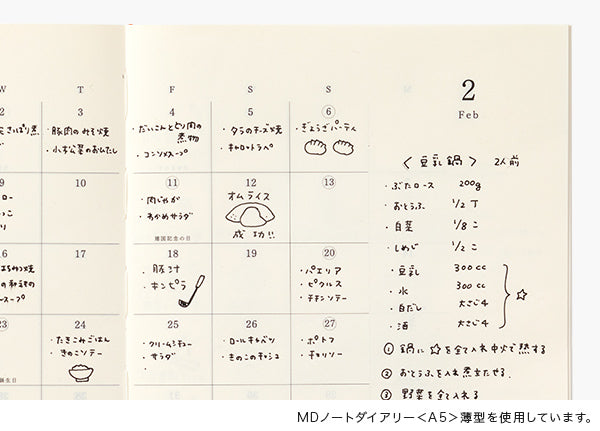 2
Feb
W
T
F
S
S
3
・豚肉のみそ焼
・小松菜のおひたし
4
・だいこんととり肉の
煮物
・コンソメスープ
5
・タラのチーズ焼
・キャロットラペ
6
・ぎょうざパーティ
10
11
・肉じゃが
・わかめサラダ
建国記念の日
12
オムライス
成功!!
13
17
18
・豚汁
・キンピラ
19
20
・パエリア
・ピクルス
・チキンソテー
24
・たきこみごはん
・きのこソテー
25
・クリームシチュー
・サラダ
26
・ロールキャベツ
・きのこのキッシュ
27
・ポトフ
・チョリソー
〈豆乳鍋〉 2人前
・ぶたロース 200g
・おとうふ 1/2丁
・白菜 1/8こ
・しめじ 1/2こ
・豆乳 300cc
・水 300cc
・白だし 大さじ4
・酒 大さじ4
☆
① 鍋に☆を全て入れ中火で熱する
② おとうふを入れ煮立たせる。
③ 野菜を全て入れる
MDノートダイアリー<A5>薄型を使用しています。